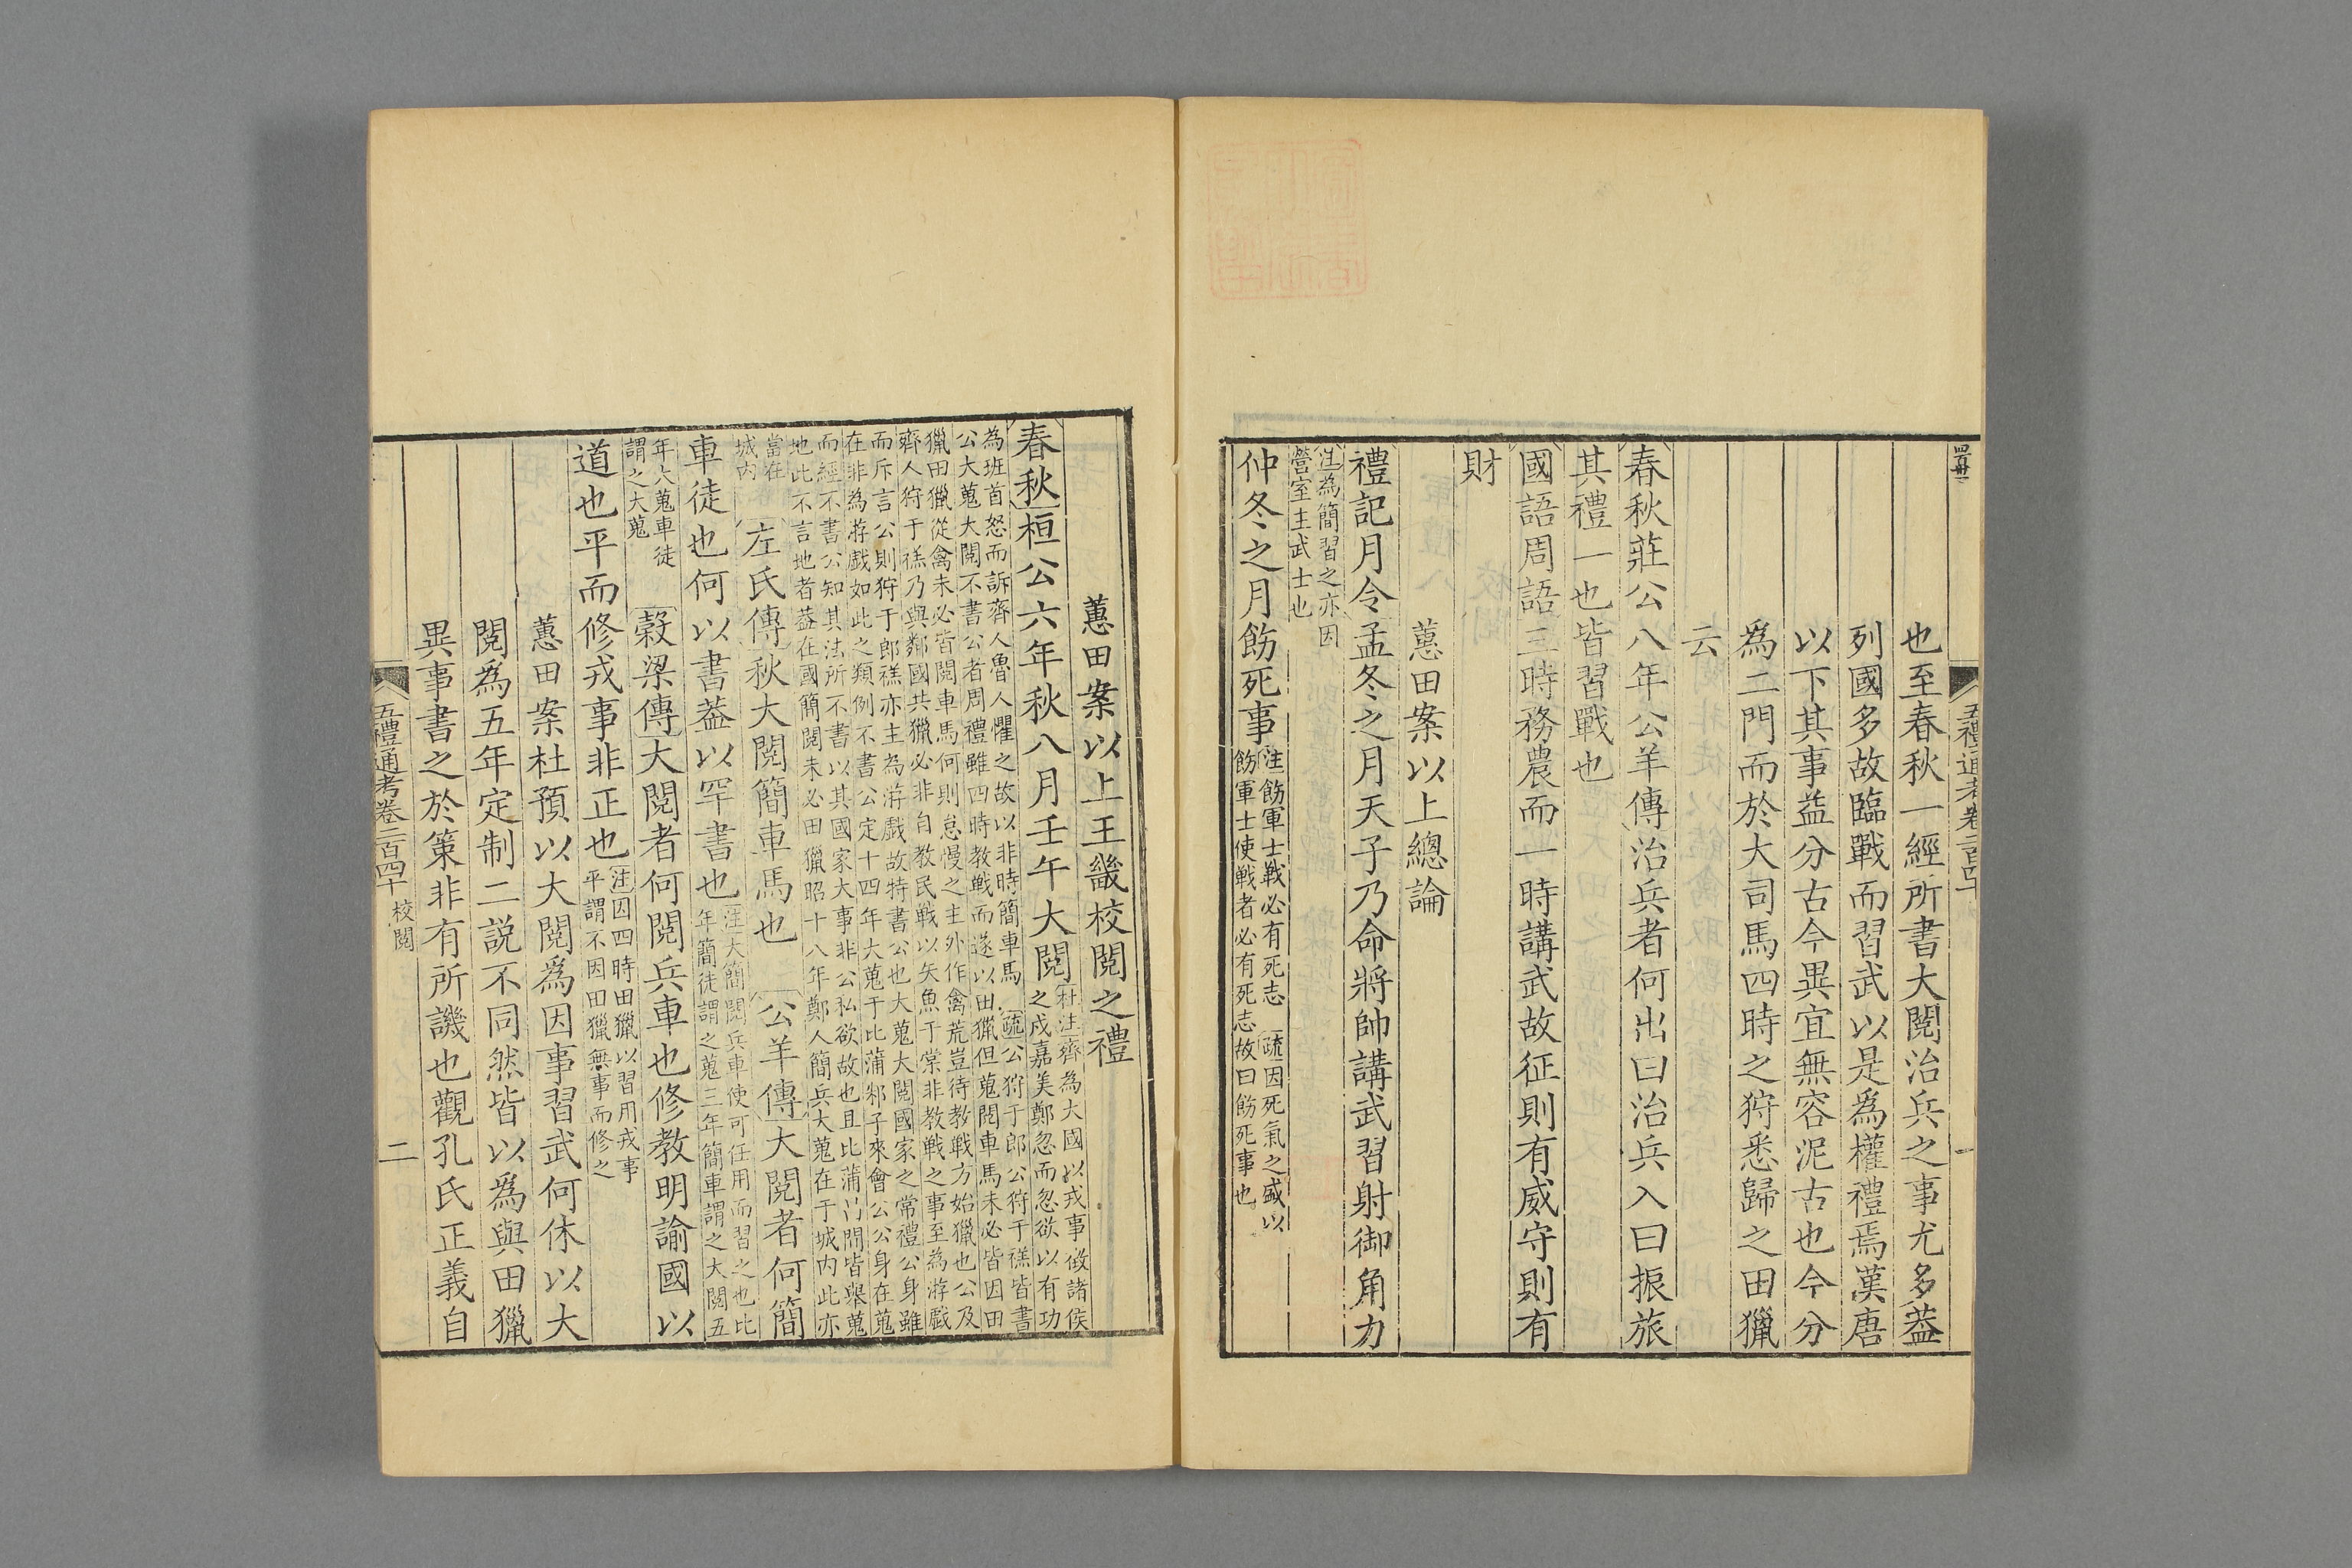 也至春秋一經所書大閱治兵之事尤多葢
列國多故臨戰而習武以是爲權禮焉漢唐
以下其事益分古今異宜無容泥古也今分
爲二門而於大司馬四時之狩悉歸之田獵
云
春秋莊公八年公羊傳治兵者何出曰治兵入曰振旅
其禮一也皆習戰也
國語周語三時務農而一時講武故征則有威守則有
財
蕙田案以上總論
禮記月令孟冬之月天子乃命將帥講武習射御角力
注為簡習之亦因
營室主武士也
仲冬之月飭死事
注飭軍士戰必有死志 疏因死氣之盛以
飭軍士使戰者必有死志故曰飭死事也
蕙田案以上王畿校閱之禮
春秋桓公六年秋八月壬午大閱
杜注齊為大國以戎事徴諸侯
之戍嘉美鄭忽而忽欲以有功
為班首怒而訴齊人魯人懼之故以非時簡車馬 疏公狩于郎公狩于禚皆書
公大蒐大閱不書公者周禮雖四時教戰而遂以田獵但蒐閱車馬未必皆因田
獵田獵從禽未必皆閱車馬何則怠慢之主外作禽荒豈待教戰方始獵也公及
齊人狩于禚乃與鄰國共獵必非自教民戰以矢魚于棠非教戰之事至為游戲
而斥言公則狩于郎禚亦主為游戲故特書公也大蒐大閱國家之常禮公身雖
在非為游戲如此之類例不書公定十四年大蒐于比蒲邾子來會公公身在蒐
而經不書公知其法所不書以其國家大事非公私欲故也且比蒲昌間皆舉蒐
地此不言地者葢在國簡閱未必田獵昭十八年鄭人簡兵大蒐在于城内此亦
當在
城内
左氏傳秋大閱簡車馬也 公羊傳大閱者何簡
車徒也何以書葢以罕書也
注大簡閱兵車使可任用而習之也比
年簡徒謂之蒐三年簡車謂之大閱五
年大蒐車徒
謂之大蒐
穀梁傳大閱者何閱兵車也修教明諭國以
道也平而修戎事非正也
注因四時田獵以習用戎事
平謂不因田獵無事而修之
蕙田案杜預以大閱爲因事習武何休以大
閱爲五年定制二説不同然皆以爲與田獵
異事書之於策非有所譏也觀孔氏正義自
五禮通考卷二百四十 校閱
二